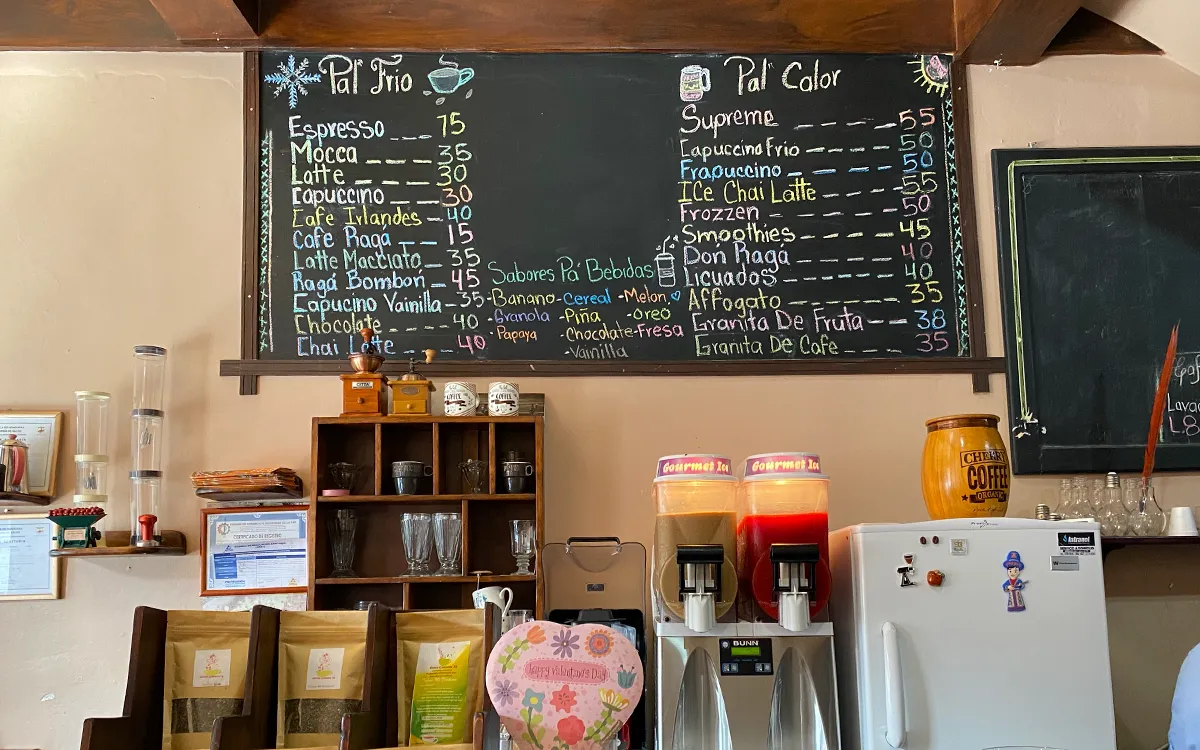 Pal' Frio
Espresso ___ 15
Mocca ____ 35
Latte ____ 30
Capuccino ___ 30
Cafe Irlandes - 40
Cafe Ragá __ 15
Latte Macciato__ 35
Ragá Bombon_ 45
Capucino Vainilla - 35
Chocolate ____ 40
Chai Latte ___ 40
Sabores Pa' Bebidas
-Banano -Cereal -Melon
-Granola -Piña -oreo
-Papaya -Chocolate -Fresa
-Vainilla
Pal' Calor
Supreme _ _ _ _ _ 55
Capuccino Frio _ _ _ _ 50
Frapuccino _ _ _ _ 50
ICe Chai Latte _ _ _ _ 55
Frozzen _ _ _ _ _ 50
Smoothies _ _ _ _ 45
Don Ragá _ _ _ _ 40
Licuados _ _ _ _ 40
Affogato _ _ _ _ _ 35
Granita De Fruta _ _ 38
Granita De Cafe _ _ _ 35
COFFEE
COFFEE
Gourmet Ice
Gourmet Ice
BUNN
CHERRY
COFFEE
ORGANIC
Lava
L.8
Happy Valentine's Day